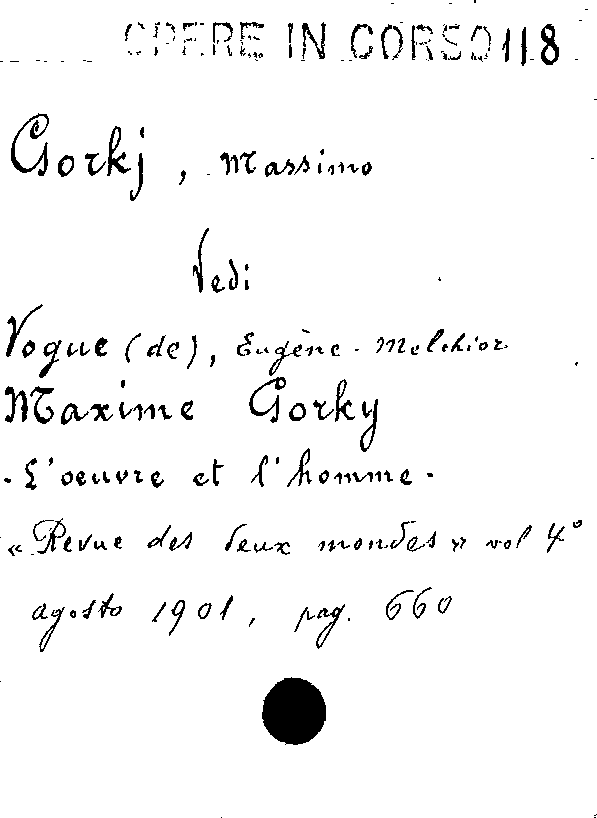 OPERE IN CORSO 118
Gorkj, Massimo
Vedi
Vogue (de), Eugène-Melchior
Maxime Gorky
- L'oeuvre et l'homme -
« Revue des deux mondes » vol 4°
agosto 1901, pag. 660